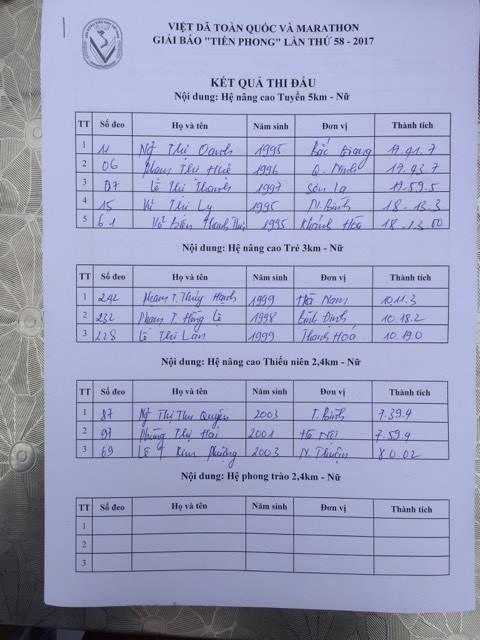 VIỆT DÃ TOÀN QUỐC VÀ MARATHON
GIẢI BÁO "TIỀN PHONG" LẦN THỨ 58 - 2017
KẾT QUẢ THI ĐẤU
Nội dung: Hệ nâng cao Tuyển 5km - Nữ
TT Số đeo Họ và tên Năm sinh Đơn vị Thành tích
1 11 Ng~ Thị Oanh 1995 Bắc Giang
2 06 Phạm Thị Huệ 1996 Q. Ninh
3 Lê Thị Thanh 1997 Sơn La 17.59.5
4 15 Vũ Thị Ly 1995 N. Bình 18.13.3
5 61 1995 Khánh Hòa
Nội dung: Hệ nâng cao Trẻ 3km - Nữ
TT Số đeo Họ và tên Năm sinh Đơn vị Thành tích
1 242 Phạm T. Thúy Hạnh 1999 Hà Nam 10.11.3
2 232 Phạm T. Hồng Lệ 1998 Bình Định 10.18.2
3 228 Lê Thị Lan 1999 Thanh Hoá 10.19.0
Nội dung: Hệ nâng cao Thiếu niên 2,4km - Nữ
TT Số đeo Họ và tên Năm sinh Đơn vị Thành tích
1 87 Ng~ Thị Thu Quyên 2003 T. Bình 7.39.4
2 97 Phùng Thị Hải 2001 Hà Nội 7.59.4
3 69 Lê T Kim Phượng 2003 N. Thuận 8.0.02
Nội dung: Hệ phong trào 2,4km - Nữ
TT Số đeo Họ và tên Năm sinh Đơn vị Thành tích
1
2
3